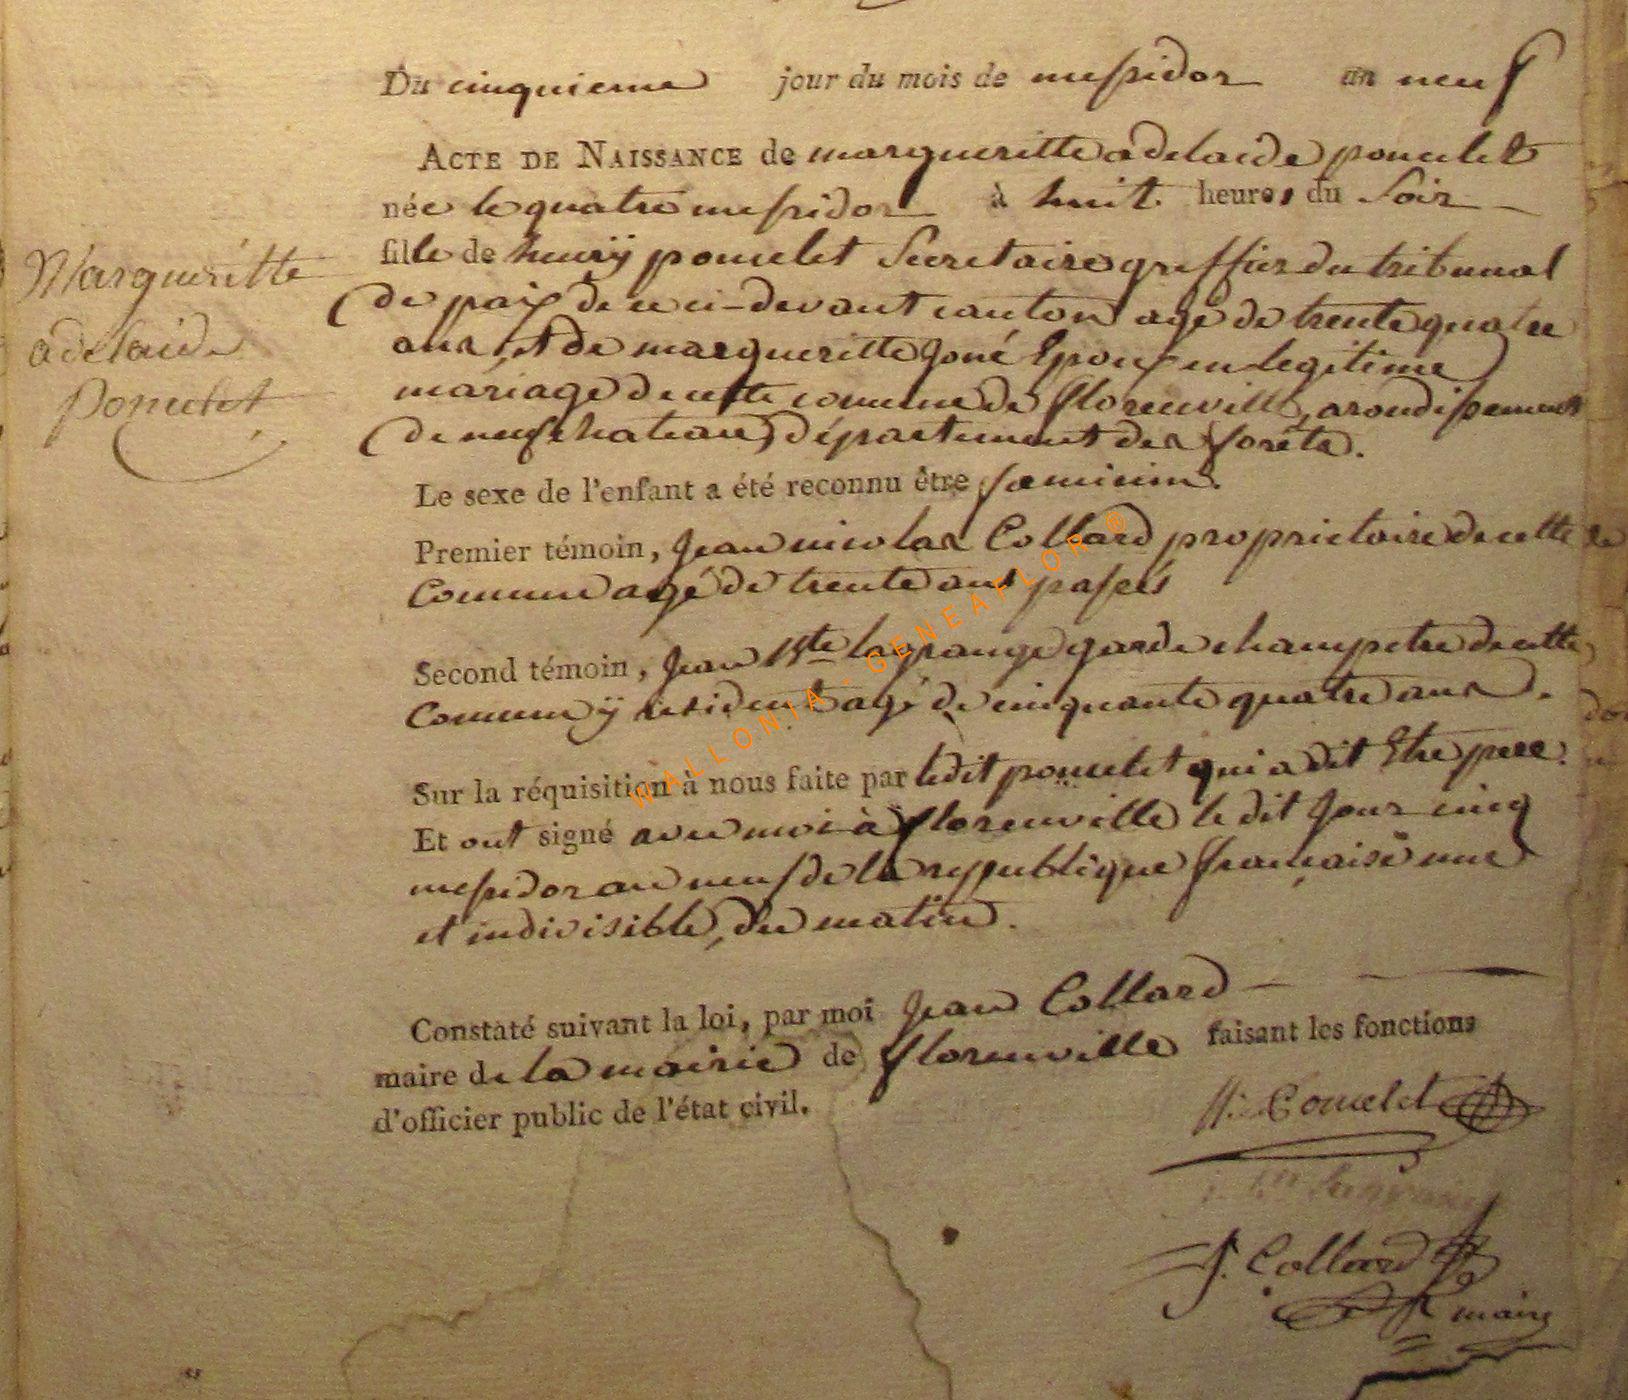 Du cinquieme jour du mois de messidor an neuf
ACTE DE NAISSANCE de margueritte adelaide poncelet
née le quatre messidor à huit heures du Soir
fille de henrÿ poncelet Secretaire greffier du tribunal
de paix de ce ci-devant canton agé de trente quatre
ans, et de margueritte Epoux en legitime
mariage de cette commune de florenville, arondissement
de neufchateau, département des forêts.
Margueritte
adelaide
Poncelet
Le sexe de l'enfant a été reconnu être fæminin.
Premier témoin, Jean nicolas Collard proprietaire de cette
Commune agé de trente ans passés
Second témoin, Jean Bte lagrange garde champetre de cette
Commune ÿ résident agé de cinquante quatre ans.
Sur la réquisition à nous faite par ledit poncelet qui a dit Etre pere.
Et ont signé avec moi à florenville le dit Jour cinq
messidor an neuf de la republique française une
et indivisible, du matin.
Constaté suivant la loi, par moi Jean Collard
maire de la mairie de florenville faisant les fonctions
d'officier public de l'état civil.
H: Poncelet
J. Collard
maire
WALLONIA - GENEAFLOR ®